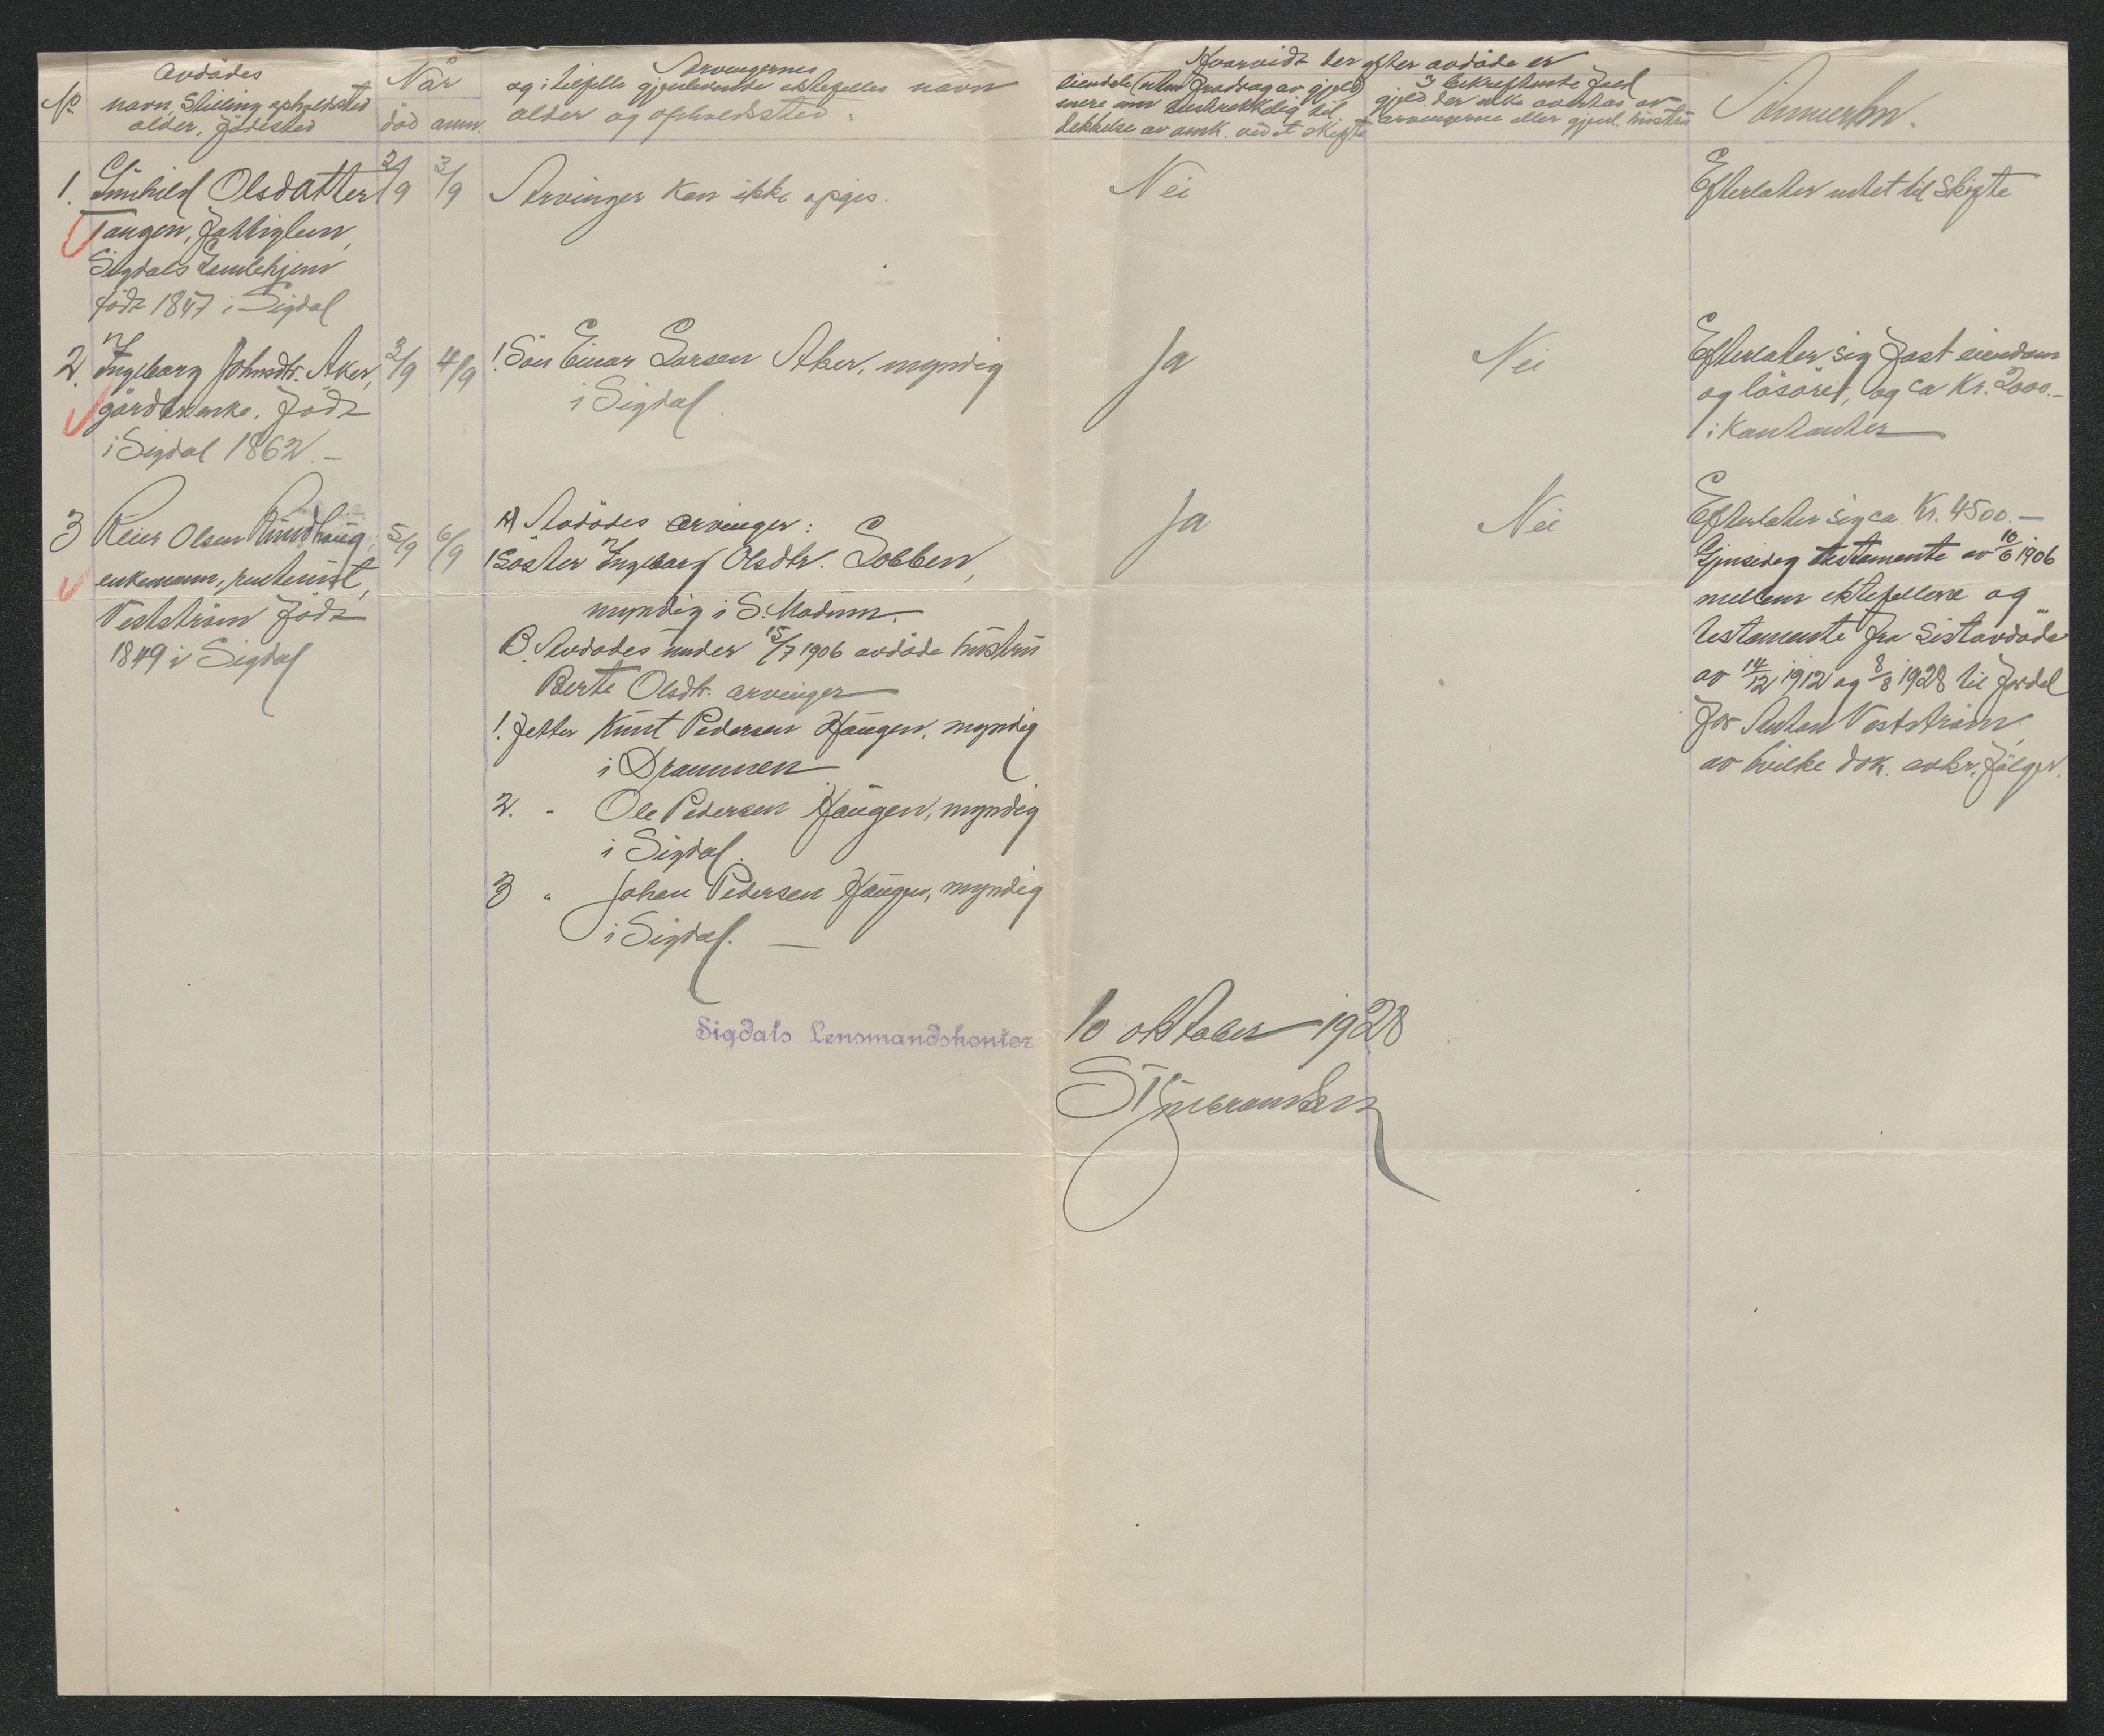 No
Avdødes
navn, Stilling opholdssted
alder, fødested
Når
død anm.
Arvingernes
og i tilfelle gjenlevende ektefelles navn
alder og opholdssted.
Hvorvidt der efter avdøde er
eiendele (uten fradrag av gjeld)
mere enn tilstrekkelig til
dekkelse av omk. ved et skifte
I bekreftende fall
gjeld der ikke overtas av
arvingerne eller gjenl. hustru
Anmerkn.
1. Gunhild Olsdatter 2/9 3/9 Arvinger kan ikke opgis. Nei Efterlater intet til skifte
Tangen, fattiglem,
Sigdals Gamlehjem
født 1847 i Sigdal
2. Ingeborg Johnsdtr. Aker, 3/9 4/9 1. Søn Einar Larsen Aker, myndig Ja Nei Efterlater sig fast eiendom
gårdkr.enke. født i Sigdal. og løsøre, og ca Kr. 2000.-
i Sigdal 1862.- i kontanter
3 Reier Olsen Rundhaug, 5/9 6/9 A) Avdødes arvinger: Ja Nei Efterlater sig ca. Kr. 4500.-
enkemann, rentenist, 1 Søster Ingeborg Olsdtr. Lobben, Gjensidig testamente av 10/6 1906
Vestström født myndig i S. Modum. mellem ektefellene og
1849 i Sigdal B. Avdødes under 15/7 1906 avdøde hustru testamente fra sistavdøde
Berte Olsdtr. arvinger av 14/12 1912 og 8/8 1928 til fordel
1. fetter Knut Pedersen Haugen, myndig for Anton Vestström,
i Drammen av hvilke dok. avkr. følger.
2. " Ole Pedersen Haugen, myndig
i Sigdal.
3 " Johan Pedersen Haugen, myndig
i Sigdal. -
Sigdals Lensmandskontor 10 oktober 1928